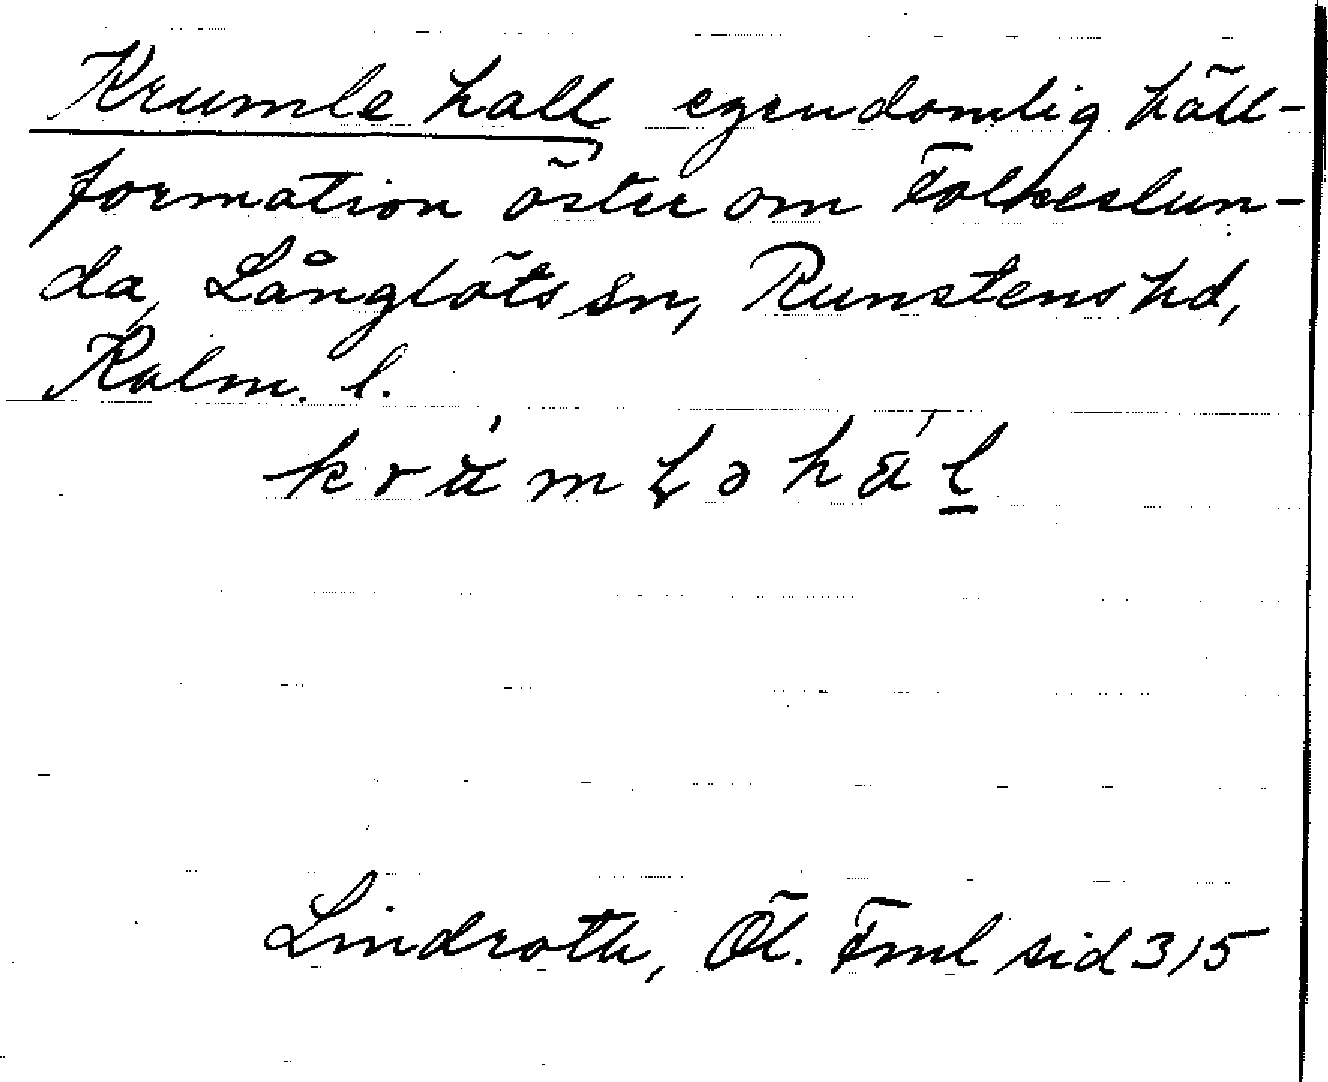 Krumle hall, egendomlig häll-
formation öster om Folkeslun-
da, Långlöts sn, Runstens hd,
Kalm. l.
Lindroth, Öl. Fml sid 315